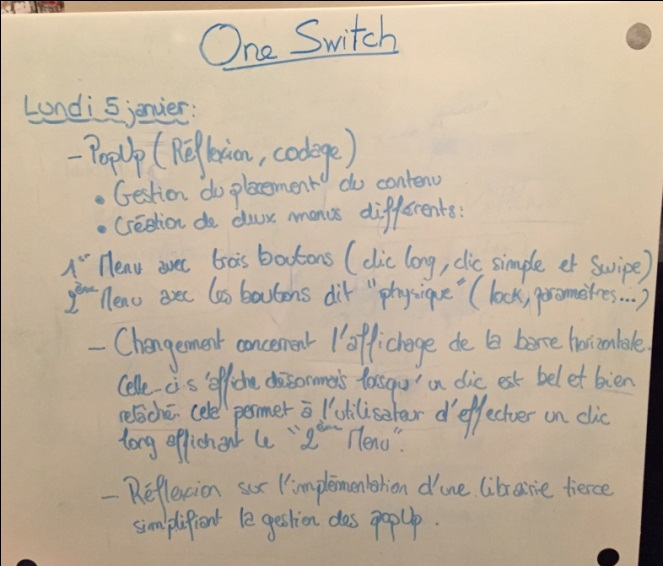 One Switch
Lundi 5 janvier:
- PopUp (Réflexion, codage)
• Gestion du placement du contenu
• Création de deux menus différents:
1er Menu avec trois boutons (clic long, clic simple et Swipe)
2ème Menu avec les boutons dit "physique" (lock, paramètres...)
- Changement concernant l'affichage de la barre horizontale.
Celle-ci s'affiche désormais lorsqu'un clic est bel et bien
relâché. Cela permet à l'utilisateur d'effectuer un clic
long affichant le "2ème Menu".
- Réflexion sur l'implémentation d'une librairie tierce
simplifiant la gestion des popUp.